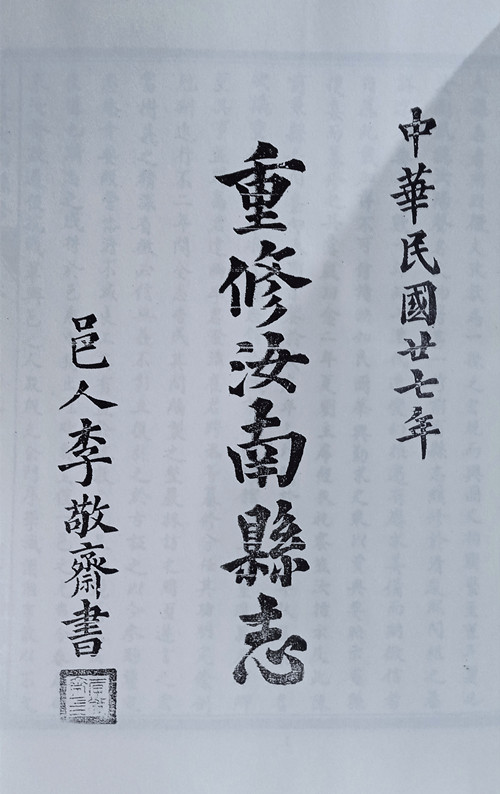 中華民國廿七年
重修汝南縣志
邑人李敬齋書